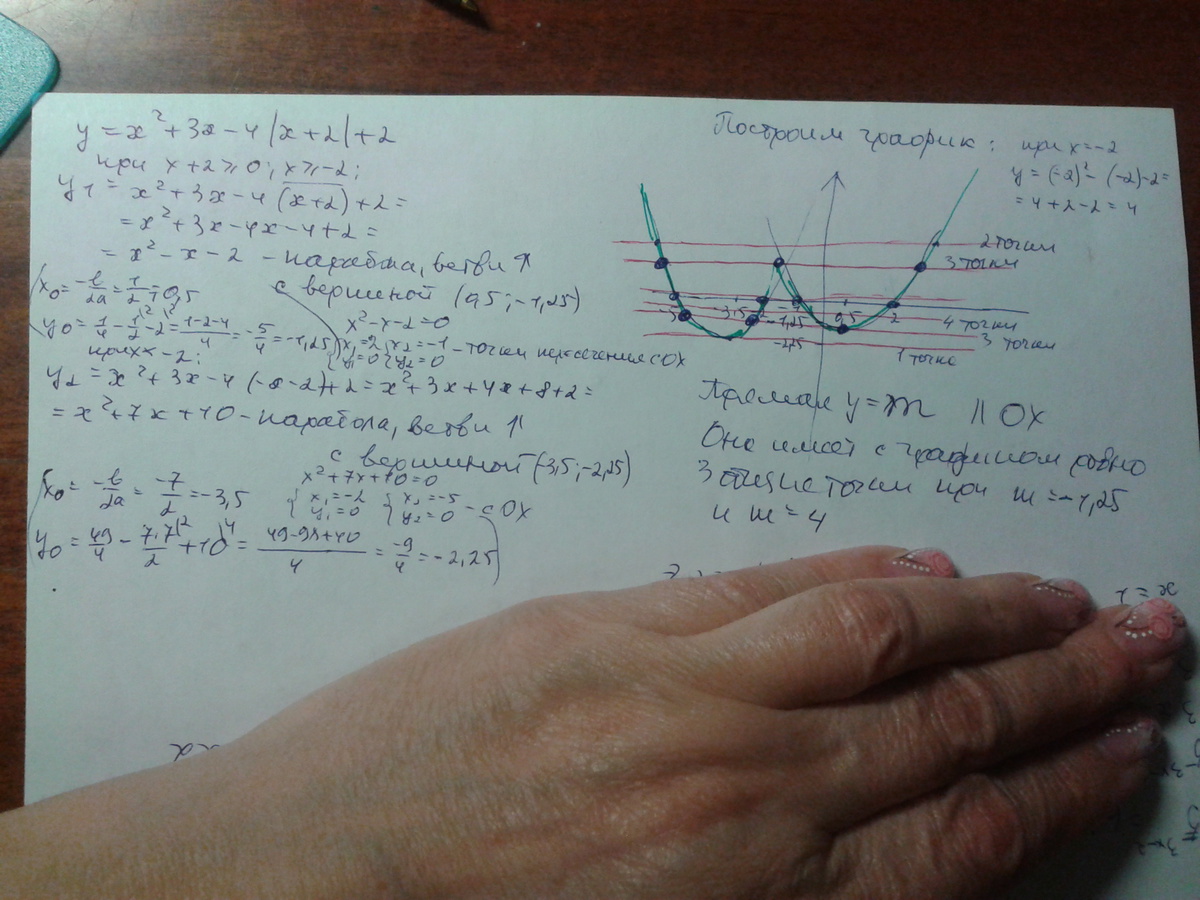 y = x² + 3x - 4|x+2| + 2
при x+2 ≥ 0; x ≥ -2;
y₁ = x² + 3x - 4(x+2) + 2 =
= x² + 3x - 4x - 4 + 2 =
= x² - x - 2 - парабола, ветви ⇑
с вершиной (0,5; -1,25)
x₀ = -b/2a = 1/2 = 0,5
y₀ = 1/4 - 1/2 - 2 = (1-2-4)/4 = -5/4 = -1,25
x² - x - 2 = 0
{x₁ = 2 {x₂ = -1 - точки пересечения с OX
{y₁ = 0 {y₂ = 0
при x < -2;
y₂ = x² + 3x - 4(-x-2) + 2 = x² + 3x + 4x + 8 + 2 =
= x² + 7x + 10 - парабола, ветви ⇑
с вершиной (-3,5; -2,25)
x₀ = -b/2a = -7/2 = -3,5
x² + 7x + 10 = 0
{x₁ = -2 {x₂ = -5 - с OX
{y₁ = 0 {y₂ = 0
y₀ = 49/4 - 7·7/2 + 10 = (49-98+40)/4 = -9/4 = -2,25
Построим график:
при x = -2
y = (-2)² - (-2) - 2 =
= 4 + 2 - 2 = 4
2 точки
3 точки
-3,5
-1,25
0,5
2
4 точки
-2,25
3 точки
1 точка
Прямая y = m || OX
Она имеет с графиком ровно
3 общие точки при m = -1,25
и m = 4